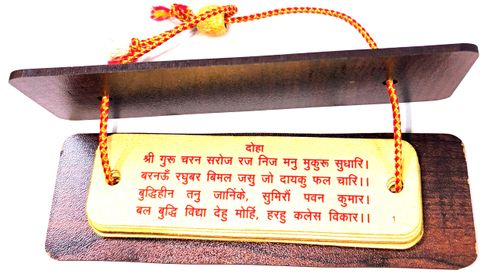 दोहा
श्री गुरू चरन सरोज रज निज मनु मुकुरू सुधारि।
बरनऊँ रघुबर बिमल जसु जो दायकु फल चारि।।
बुद्धिहीन तनु जानिके, सुमिरौं पवन कुमार।
बल बुद्धि विद्या देहु मोहिं, हरहु कलेस विकार।।
1